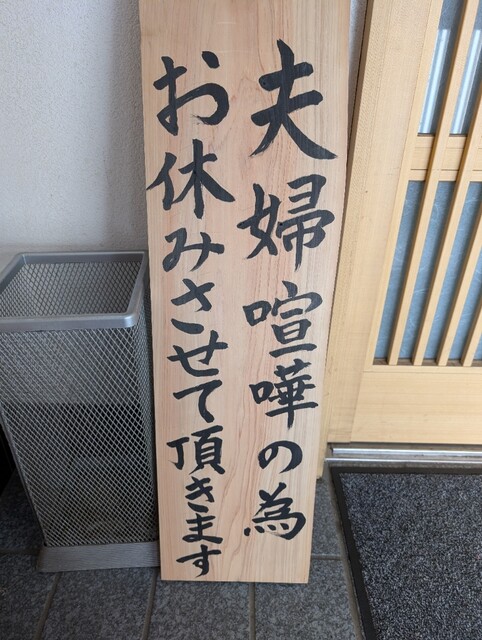 夫婦喧嘩の為
お休みさせて頂きます